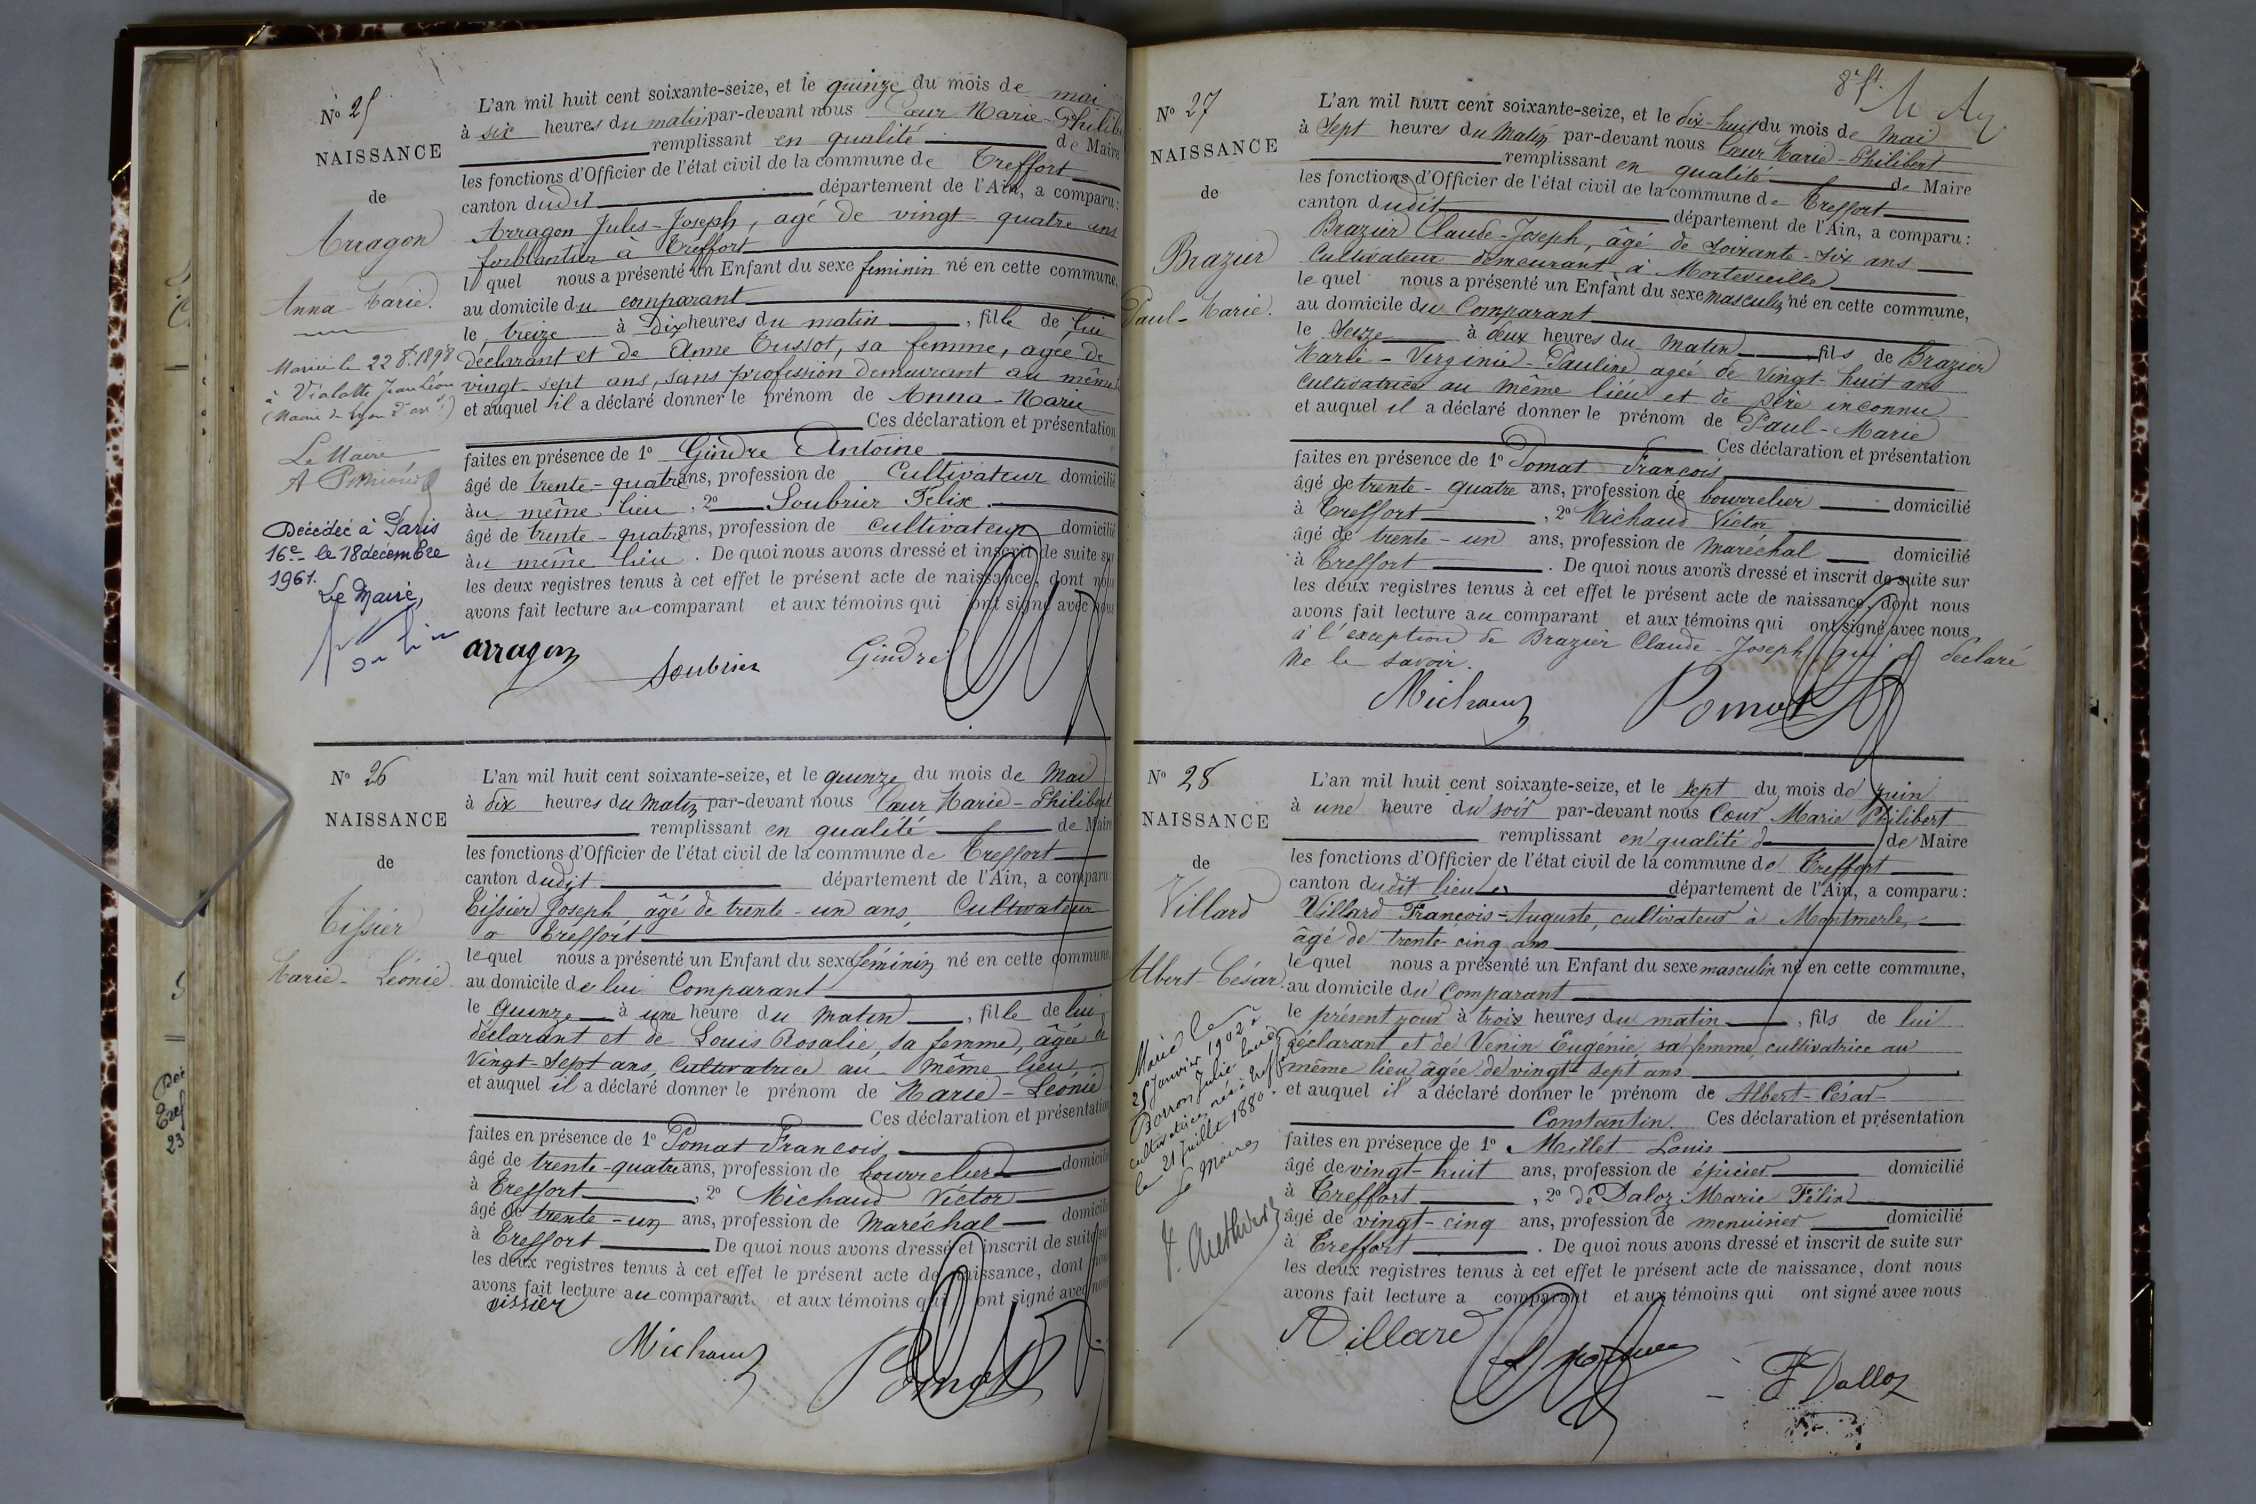 N° 25
NAISSANCE
de
Arragon
Anna-Marie.
Mariée le 22 8bre 1898
à Violatte Jean Léon
(Mairie de Lyon 2e arrt)
Le Maire
Décédée à Paris
16e le 18 décembre
1961.
Le Maire,
L'an mil huit cent soixante-seize, et le quinze du mois de mai
à six heures du matin par-devant nous Cœur Marie-Philib
remplissant en qualité de Maire
les fonctions d'Officier de l'état civil de la commune de Treffort
canton dudit département de l'Ain, a comparu:
Arragon Jules-Joseph, agé de vingt-quatre ans
ferblantier à Treffort
lequel nous a présenté un Enfant du sexe feminin né en cette commune,
au domicile du comparant
le treize à Dix heures du matin, fille de lui
déclarant et de Anne Tussot, sa femme, agée de
vingt-sept ans, sans profession demeurant au même
et auquel il a déclaré donner le prénom de Anna-Marie
Ces déclaration et présentation
faites en présence de 1° Gindre Antoine
âgé de trente-quatre ans, profession de Cultivateur domicilié
au même lieu, 2° Soubrier Felix.
âgé de trente-quatre ans, profession de cultivateur domicilié
au même lieu. De quoi nous avons dressé et inscrit de suite sur
les deux registres tenus à cet effet le présent acte de naissance, dont nous
avons fait lecture au comparant et aux témoins qui ont signé avec nous
arragon
Soubrier
Gindre
N° 26
NAISSANCE
de
Tissier
Marie-Léonie
L'an mil huit cent soixante-seize, et le quinze du mois de Mai
à dix heures du Matin par-devant nous Cœur Marie-Philibert
remplissant en qualité de Maire
les fonctions d'Officier de l'état civil de la commune de Treffort
canton dudit département de l'Ain, a comparu
Tissier Joseph âgé de trente-un ans, Cultivateur
a Treffort
lequel nous a présenté un Enfant du sexe féminin né en cette commune,
au domicile de lui Comparant
le quinze à une heure du Matin, fille de lui
déclarant et de Louis Rosalie, sa femme, âgée de
Vingt-sept ans, Cultivatrice au même lieu
et auquel il a déclaré donner le prénom de Marie-Léonie
Ces déclaration et présentation
faites en présence de 1° Pomat François
âgé de trente-quatre ans, profession de bourrelier domicilié
à Treffort, 2° Michaud Victor
âgé de trente-un ans, profession de Maréchal domicilié
à Treffort De quoi nous avons dressé et inscrit de suite sur
les deux registres tenus à cet effet le présent acte de naissance, dont nous
avons fait lecture au comparant et aux témoins qui ont signé avec nous
tissier
Michaud
Pomat
N° 27
NAISSANCE
de
Brazier
Paul-Marie.
L'an mil huit cent soixante-seize, et le dix-huit du mois de Mai
à Sept heures du Matin par-devant nous Cœur Marie-Philibert
remplissant en qualité de Maire
les fonctions d'Officier de l'état civil de la commune de Treffort
canton dudit département de l'Ain, a comparu:
Brazier Claude-Joseph, âgé de soixante-six ans
Cultivateur demeurant à Mortevieille
lequel nous a présenté un Enfant du sexe masculin né en cette commune,
au domicile du Comparant
le Seize à deux heures du Matin, fils de Brazier
Marie-Virginie-Pauline agée de Vingt-huit ans
Cultivatrice au même lieu et de père inconnu
et auquel il a déclaré donner le prénom de Paul-Marie
Ces déclaration et présentation
faites en présence de 1° Pomat François
âgé de trente-quatre ans, profession de bourrelier domicilié
à Treffort, 2° Michaud Victor
âgé de trente-un ans, profession de Maréchal domicilié
à Treffort. De quoi nous avons dressé et inscrit de suite sur
les deux registres tenus à cet effet le présent acte de naissance, dont nous
avons fait lecture au comparant et aux témoins qui ont signé avec nous,
à l'exception de Brazier Claude-Joseph qui a declaré
ne le savoir.
Michaud
Pomat
N° 28
NAISSANCE
de
Villard
Albert-César.
Marié le
25 Janvier 1902 à
Borron Julie
cultivatrice, née à Treffort
le 21 Juillet 1880.
Le Maire
L'an mil huit cent soixante-seize, et le sept du mois de juin
à une heure du soir par-devant nous Cœur Marie Philibert
remplissant en qualité de Maire
les fonctions d'Officier de l'état civil de la commune de Treffort
canton dudit lieu département de l'Ain, a comparu:
Villard François-Auguste, cultivateur à Montmerle,
âgé de trente-cinq ans
lequel nous a présenté un Enfant du sexe masculin né en cette commune,
au domicile du Comparant
le présent jour à trois heures du matin, fils de lui
déclarant et de Venin Eugénie, sa femme, cultivatrice au
même lieu, âgée de vingt-sept ans
et auquel il a déclaré donner le prénom de Albert-César-
Constantin. Ces déclaration et présentation
faites en présence de 1° Millet Louis
âgé de vingt-huit ans, profession de épicier domicilié
à Treffort, 2° de Daloz Marie Félix
âgé de vingt-cinq ans, profession de menuisier domicilié
à Treffort. De quoi nous avons dressé et inscrit de suite sur
les deux registres tenus à cet effet le présent acte de naissance, dont nous
avons fait lecture a comparant et aux témoins qui ont signé avec nous
Villard
F Dalloz